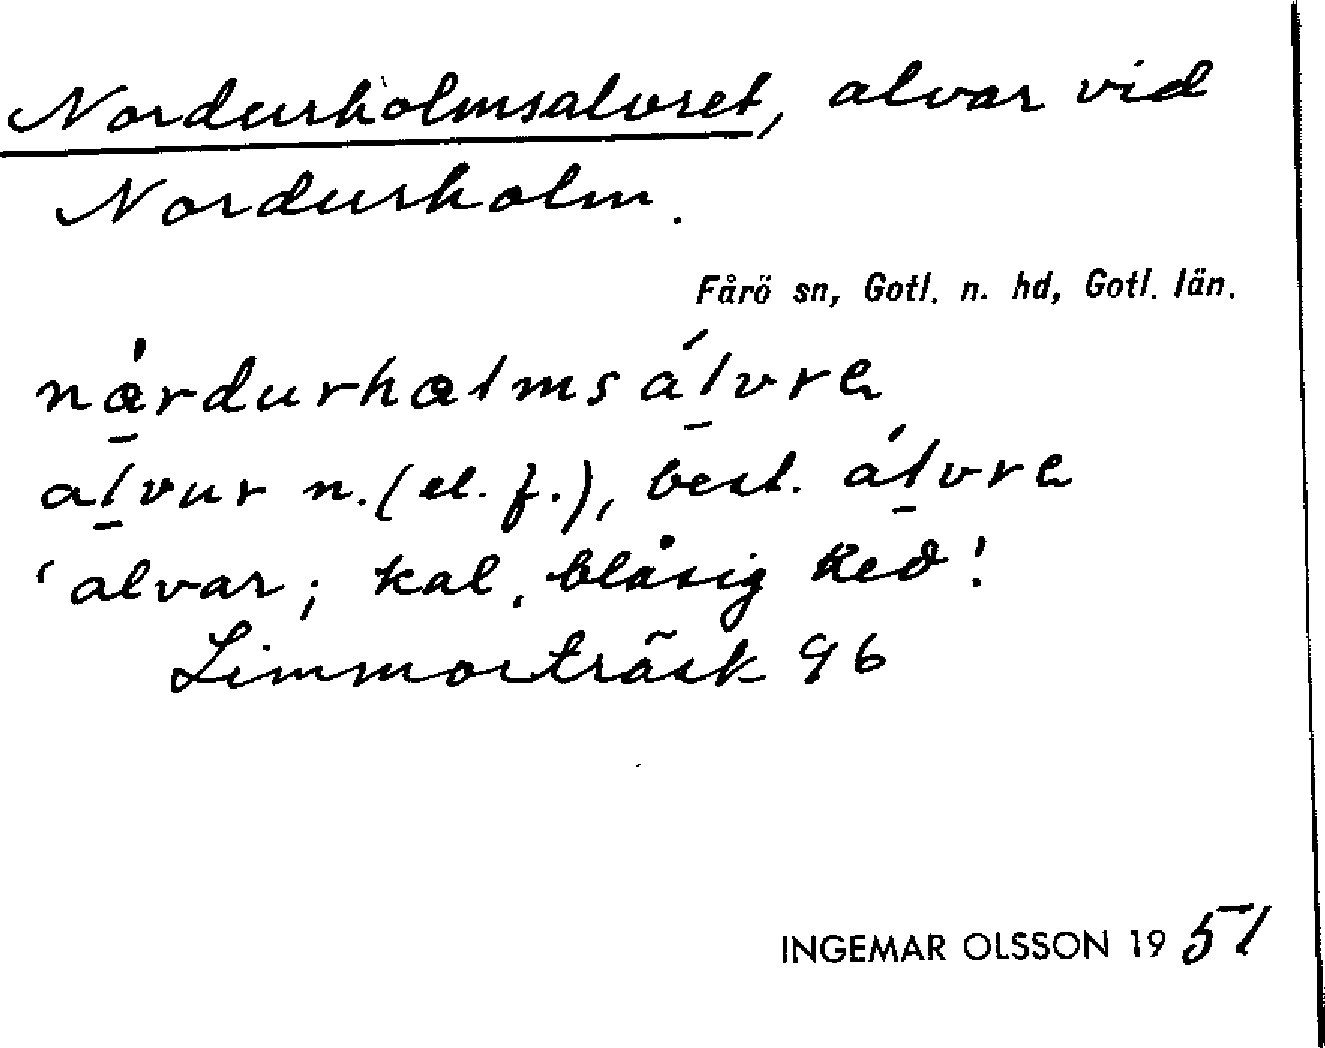 Nordurholmsalvret, alvar vid
Nordurholm.
Fårö sn, Gotl. n. hd, Gotl. län.
nårdurhalmsálvre
alvur n. (el. f.), best. álvre
'alvar; kal, blåsig hed'
Limmorträsk 96
INGEMAR OLSSON 1951